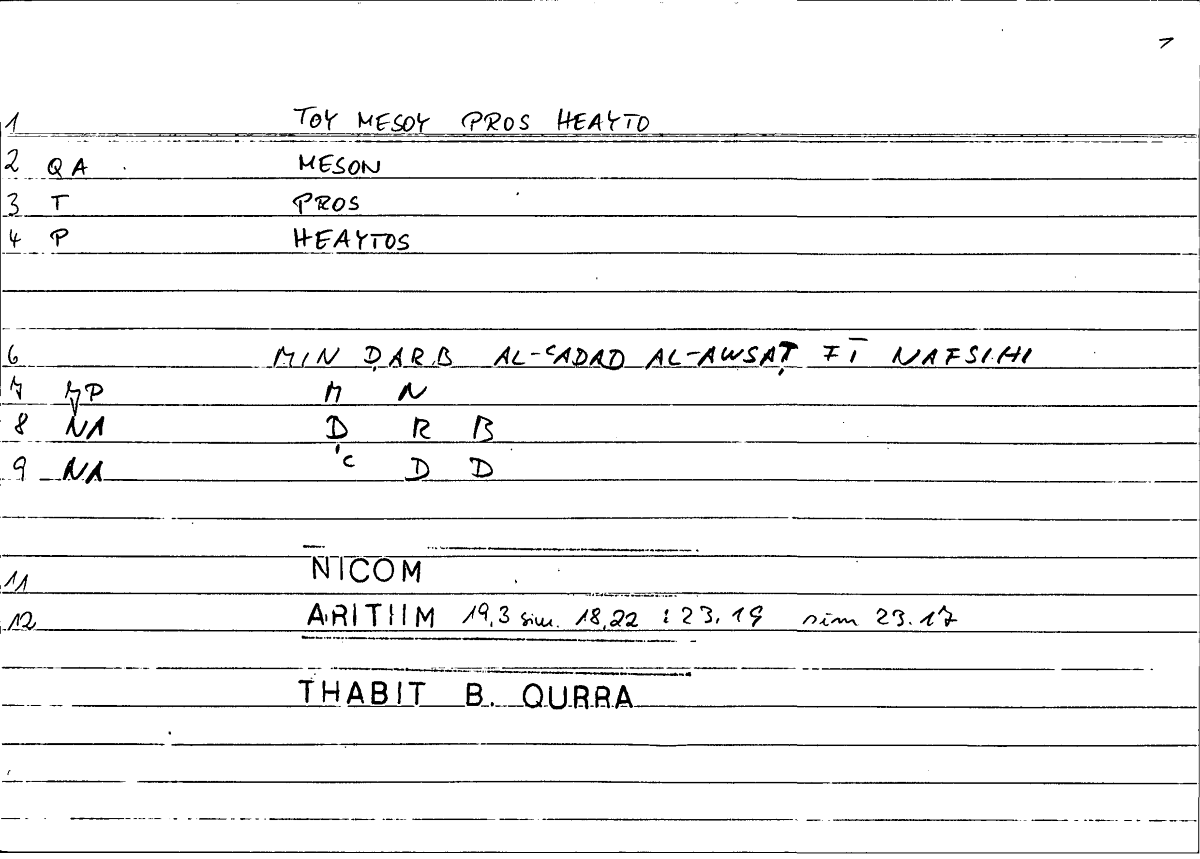 1 TOY MESOY PROS HEAYTO
2 QA MESON
3 T PROS
4 P HEAYTOS
6 MIN ḌARB AL-ᶜADAD AL-AWSAṬ FĪ NAFSIHI
7 P M N
8 NA Ḍ R B
9 NA ᶜ D D
NICOM
11
12 ARITHM 19,3 sim. 18,22 : 23.19 sim 23.17
THABIT B. QURRA